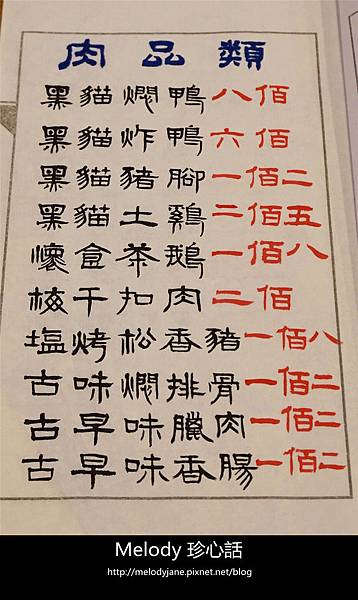 肉品類
黑貓燜鴨八佰
黑貓炸鴨六佰
黑貓豬腳一佰二
黑貓土雞二佰五
懷食茶鵝一佰八
梅干扣肉二佰
塩烤松香豬一佰八
古味燜排骨一佰二
古早味臘肉一佰二
古早味香腸一佰二
Melody 珍心話
http://melodyjane.pixnet.net/blog